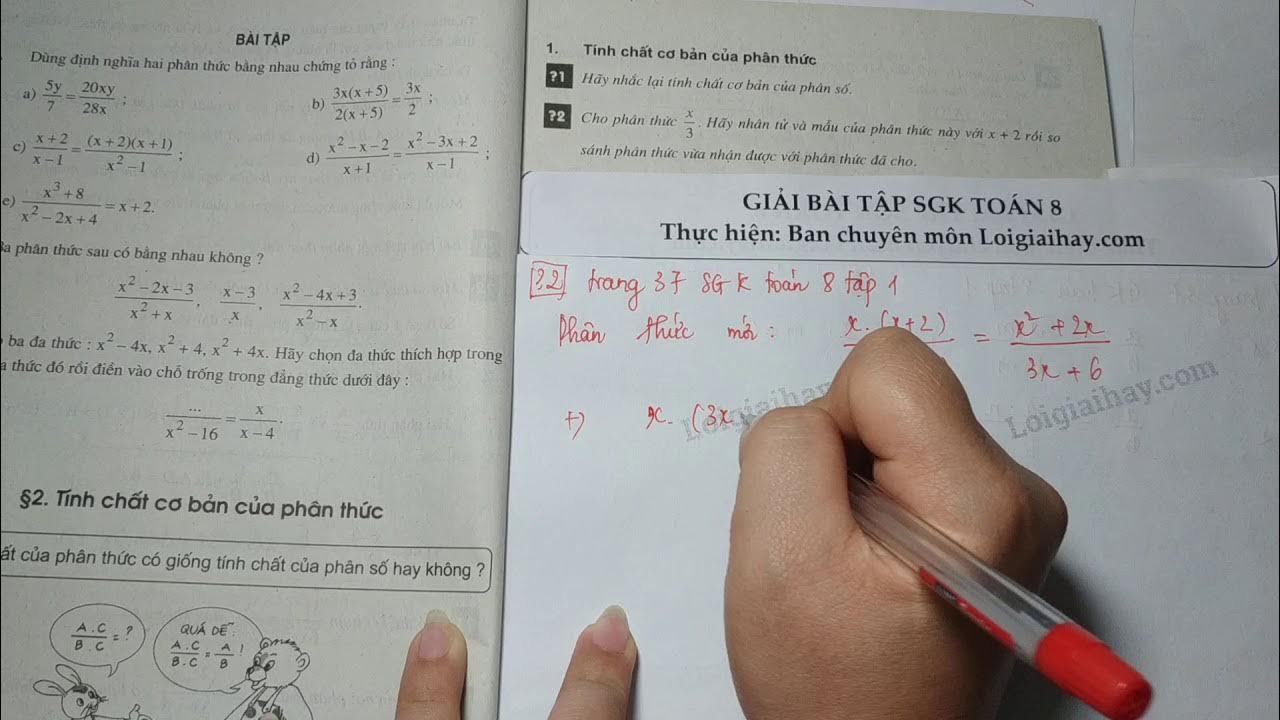 BÀI TẬP
Dùng định nghĩa hai phân thức bằng nhau chứng tỏ rằng :
a) 5y/7 = 20xy/28x ;
b) 3x(x + 5)/2(x + 5) = 3x/2 ;
c) x + 2/x − 1 = (x + 2)(x + 1)/x² − 1 ;
d) x² − x − 2/x + 1 = x² − 3x + 2/x − 1 ;
e) x³ + 8/x² − 2x + 4 = x + 2.
phân thức sau có bằng nhau không ?
x² − 2x − 3/x² + x , x − 3/x , x² − 4x + 3/x² − x .
ba đa thức : x² − 4x, x² + 4, x² + 4x. Hãy chọn đa thức thích hợp trong
thức đó rồi điền vào chỗ trống trong đẳng thức dưới đây :
.../x² − 16 = x/x − 4 .
§2. Tính chất cơ bản của phân thức
của phân thức có giống tính chất của phân số hay không ?
A.C/B.C = ?
QUÁ DỄ :
A.C/B.C = A/B !
1. Tính chất cơ bản của phân thức
?1 Hãy nhắc lại tính chất cơ bản của phân số.
?2 Cho phân thức x/3 . Hãy nhân tử và mẫu của phân thức này với x + 2 rồi so
sánh phân thức vừa nhận được với phân thức đã cho.
GIẢI BÀI TẬP SGK TOÁN 8
Thực hiện: Ban chuyên môn Loigiaihay.com
?2 trang 37 SGK toán 8 tập 1
Phân thức mới : x.(x+2) = x² + 2x/3x + 6
+) x. (3x
Loigiaihay.com
Loigiaihay.com